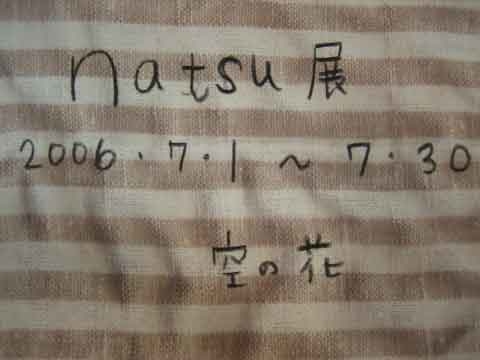 natsu 展
2006.7.1 ~ 7.30
空の花